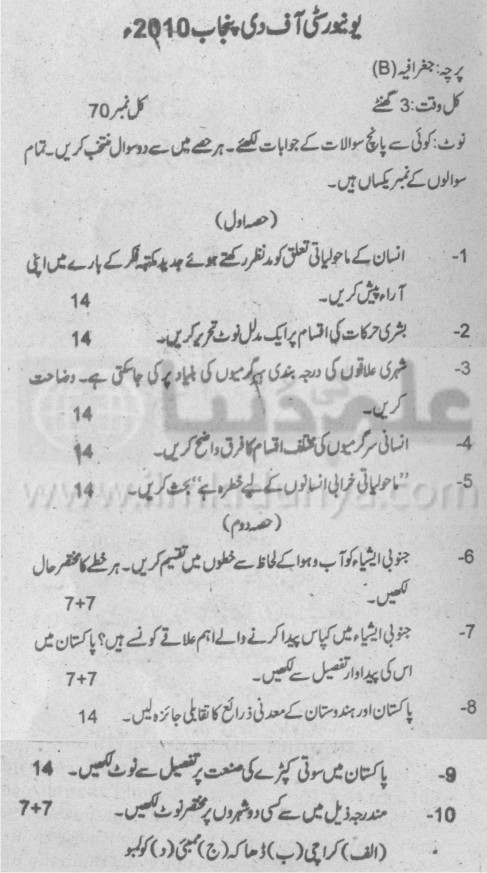 یونیورسٹی آف دی پنجاب 2010ء
پرچہ: جغرافیہ (B)
کل وقت: 3 گھنٹے کل نمبر 70
نوٹ: کوئی سے پانچ سوالات کے جوابات لکھئے۔ ہر حصے میں سے دو سوال منتخب کریں۔ تمام
سوالوں کے نمبر یکساں ہیں۔
(حصہ اول)
1- انسان کے ماحولیاتی تعلق کو مدنظر رکھتے ہوئے جدید مکتبہ فکر کے بارے میں اپنی
آراء پیش کریں۔ 14
2- بشری حرکات کی اقسام پر ایک مدلل نوٹ تحریر کریں۔ 14
3- شہری علاقوں کی درجہ بندی سرگرمیوں کی بنیاد پر کی جا سکتی ہے۔ وضاحت
کریں۔ 14
4- انسانی سرگرمیوں کی مختلف اقسام کا فرق واضح کریں۔ 14
5- "ماحولیاتی خرابی انسانوں کے لیے خطرہ ہے" بحث کریں۔ 14
(حصہ دوم)
6- جنوبی ایشیاء کو آب و ہوا کے لحاظ سے خطوں میں تقسیم کریں۔ ہر خطے کا مختصر حال
لکھیں۔ 7+7
7- جنوبی ایشیاء میں کپاس پیدا کرنے والے اہم علاقے کونسے ہیں؟ پاکستان میں
اس کی پیداوار تفصیل سے لکھیں۔ 7+7
8- پاکستان اور ہندوستان کے معدنی ذرائع کا تقابلی جائزہ لیں۔ 14
9- پاکستان میں سوتی کپڑے کی صنعت پر تفصیل سے نوٹ لکھیں۔ 14
10- مندرجہ ذیل میں سے کسی دو شہروں پر مختصر نوٹ لکھیں۔ 7+7
(الف) کراچی (ب) ڈھاکہ (ج) ممبئی (د) کولمبو
علم کی دنیا
www.ilmkidunya.com